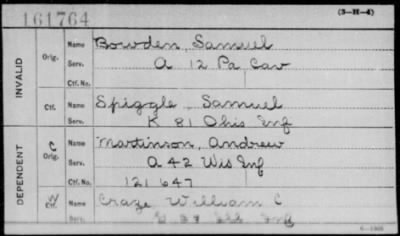 161764 (3-H-4)
INVALID
Orig. Name Bowden, Samuel
Serv. A 12 Pa Cav
Ctf. No.
Ctf. Name Spiggle Samuel
Serv. K 81 Ohio Inf
DEPENDENT
C Orig. Name Martinson, Andrew
Serv. A 42 Wis Inf
Ctf. No. 121647
W Ctf. Name Craze William C
Serv. Inf